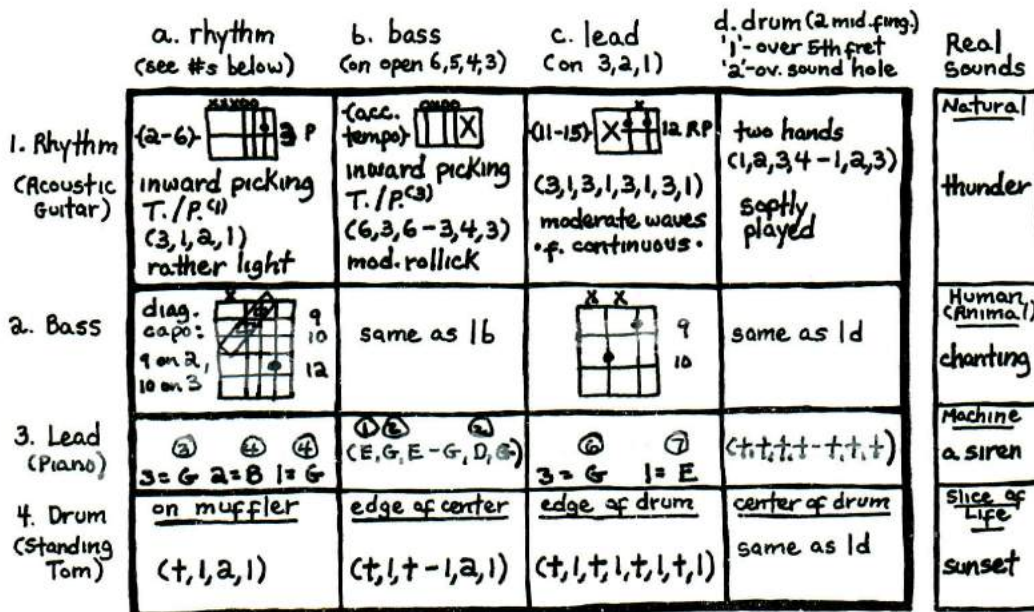 a. rhythm
(see #s below)
b. bass
(on open 6,5,4,3)
c. lead
(on 3,2,1)
d. drum (2 mid. fing.)
'1'- over 5th fret
'2'-ov. sound hole
Real
Sounds
1. Rhythm
(Acoustic
Guitar)
xxxoo
(2-6)
3 P
inward picking
T./P.(1)
(3,1,2,1)
rather light
(acc.
tempo)
X
inward picking
T./P.(3)
(6,3,6-3,4,3)
mod. rollick
x
(11-15)
X
12 RP
(3,1,3,1,3,1,3,1)
moderate waves
·f. continuous·
two hands
(1,2,3,4-1,2,3)
softly
played
Natural
thunder
2. Bass
diag.
capo:
9 on 2,
10 on 3
x
9
10
12
same as 1b
x x
9
10
same as 1d
Human
(Animal)
chanting
3. Lead
(Piano)
3 4 4
3=G 2=B 1=G
1 2 2
(E,G,E-G,D,G)
6 7
3=G 1=E
(t,t,t,t-t,t,t)
Machine
a siren
4. Drum
(Standing
Tom)
on muffler
(t,1,2,1)
edge of center
(t,1,t-1,2,1)
edge of drum
(t,1,t,1,t,1,t,1)
center of drum
same as 1d
Slice of
Life
sunset